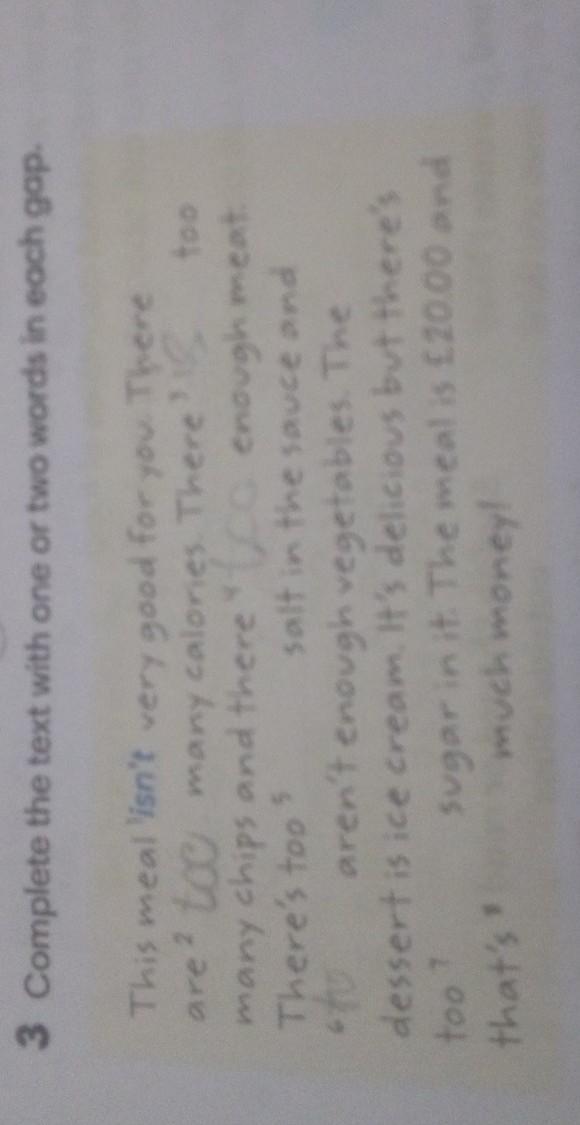 3 Complete the text with one or two words in each gap.
This meal ¹isn't very good for you. There
are ² too many calories. There ³ is too
many chips and there ⁴ too enough meat.
There's too ⁵ salt in the sauce and
⁶ to aren't enough vegetables. The
dessert is ice cream. It's delicious but there's
too ⁷ sugar in it. The meal is £20.00 and
that's ⁸ much money!